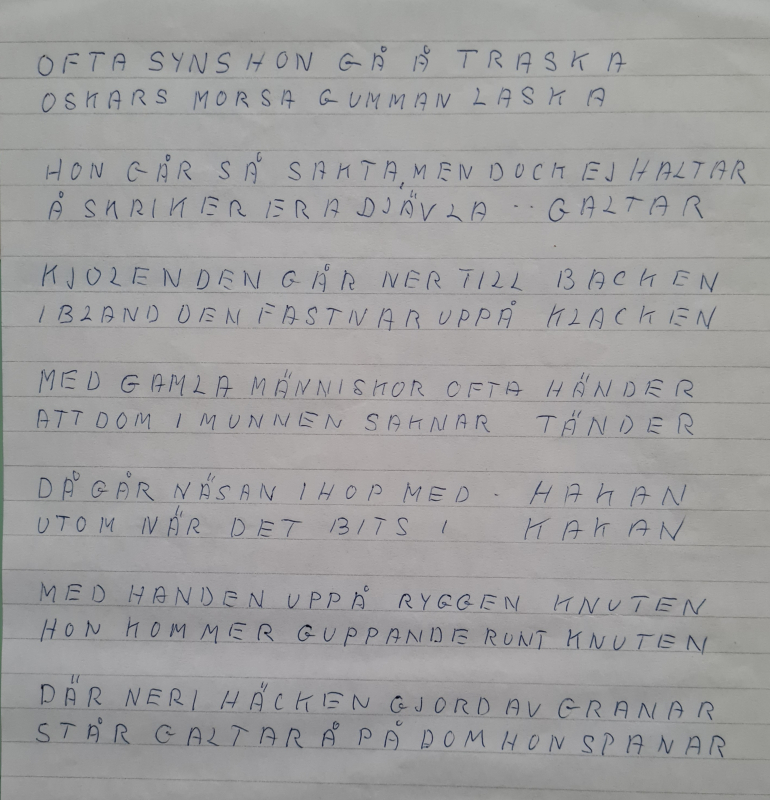 OFTA SYNS HON GÅ Å TRASKA
OSKARS MORSA GUMMAN LASKA
HON GÅR SÅ SAKTA, MEN DOCK EJ HALTAR
Å SKRIKER ERA DJÄVLA -- GALTAR
KJOLEN DEN GÅR NER TILL BACKEN
IBLAND DEN FASTNAR UPPÅ KLACKEN
MED GAMLA MÄNNISKOR OFTA HÄNDER
ATT DOM I MUNNEN SAKNAR TÄNDER
DÅ GÅR NÄSAN IHOP MED - HAKAN
UTOM NÄR DET BITS I KAKAN
MED HANDEN UPPÅ RYGGEN KNUTEN
HON KOMMER GUPPANDE RUNT KNUTEN
DÄR NERI HÄCKEN GJORD AV GRANAR
STÅR GALTAR Å PÅ DOM HON SPANAR